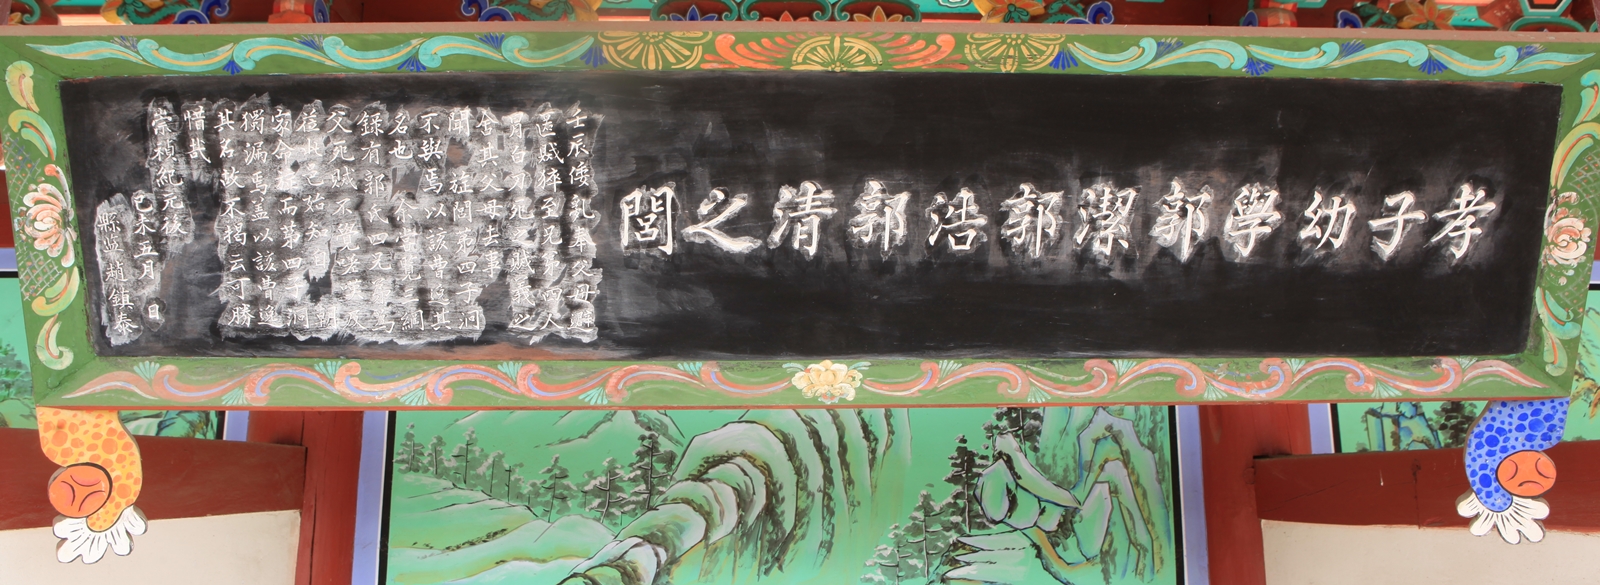 孝子幼學郭潔郭浩郭清之閭
壬辰倭乱奉父母避
匿賊猝至兄弟四人
冐白刃死之賊義之
舍其父母去事
聞旌閭第四子泂
不與焉以該曹逸其
名也余嘗覽三綱
錄有郭氏四兄弟為
父死賊不覺
莅此邑始知
家命而第四子泂
獨漏焉盖以該曹逸
其名故不揭云可勝
惜哉
崇禎紀元後
己未五月日
縣監趙鎭泰